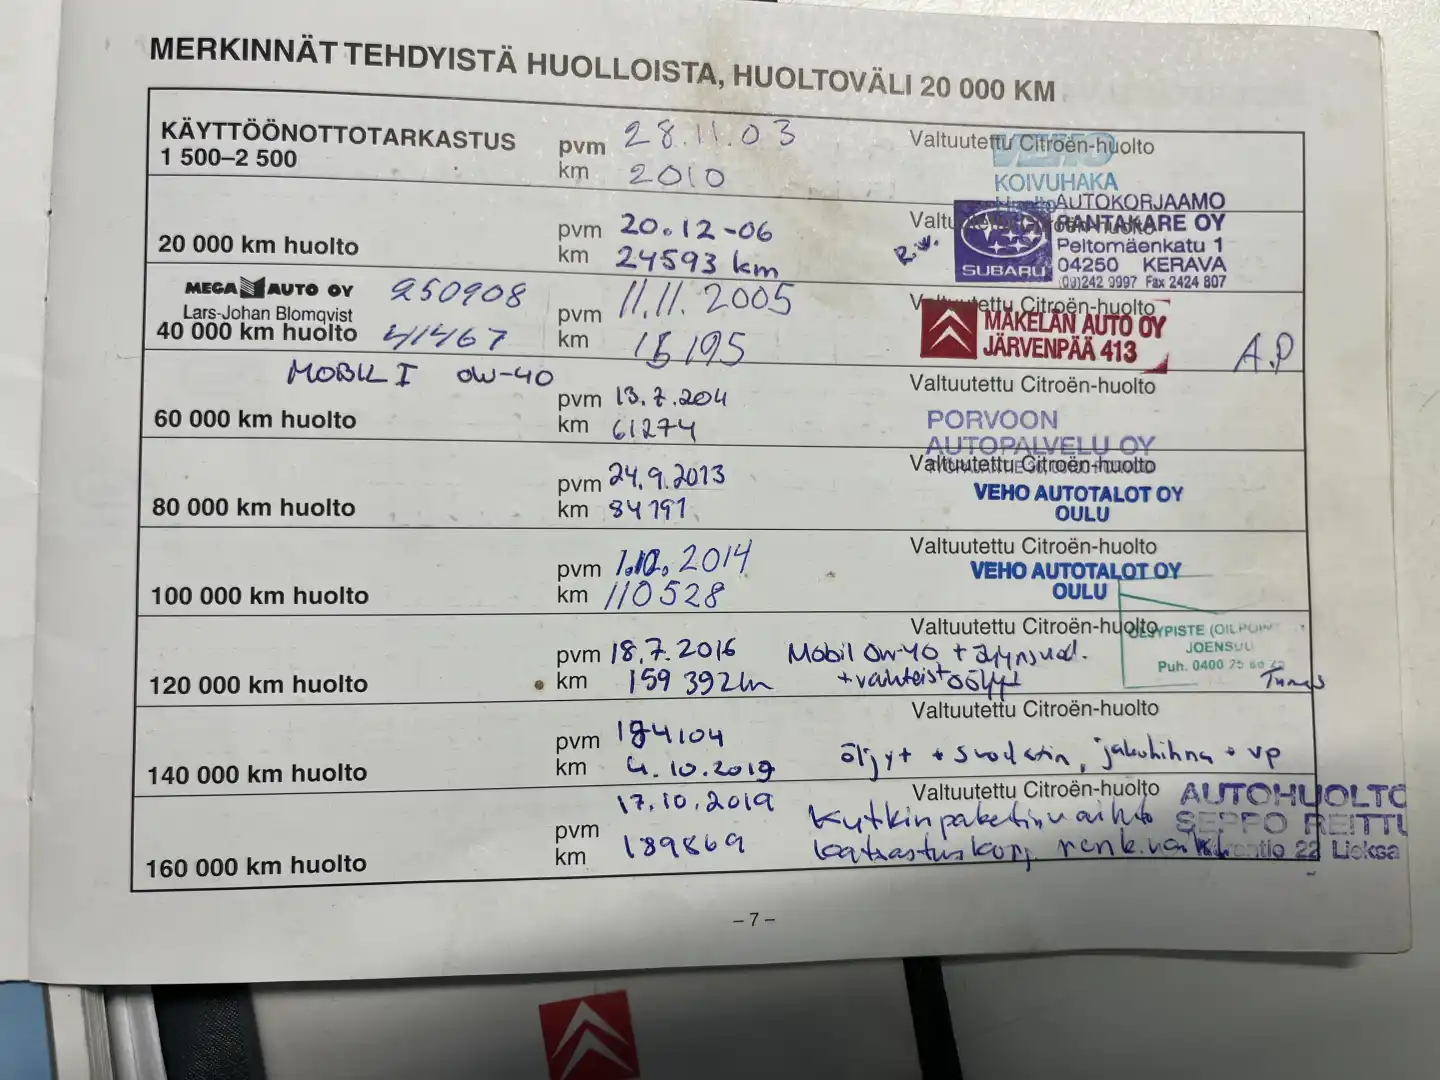 MERKINNÄT TEHDYISTÄ HUOLLOISTA, HUOLTOVÄLI 20 000 KM
KÄYTTÖÖNOTTOTARKASTUS
1 500–2 500
pvm 28.11.03
km 2010
Valtuutettu Citroën-huolto
VEHO
KOIVUHAKA
Huolto
20 000 km huolto
pvm 20.12-06
km 24593 km
R.V.
SUBARU
AUTOKORJAAMO
RANTAKARE OY
Peltomäenkatu 1
04250 KERAVA
(09)242 9997 Fax 2424 807
MEGA AUTO OY
Lars-Johan Blomqvist
250908
40 000 km huolto 41467
pvm 11.11.2005
km 15195
Valtuutettu Citroën-huolto
MÄKELÄN AUTO OY
JÄRVENPÄÄ 413
A.P
MOBIL I 0W-40
60 000 km huolto
pvm 13.7.2011
km 61274
Valtuutettu Citroën-huolto
PORVOON
AUTOPALVELU OY
80 000 km huolto
pvm 24.9.2013
km 84191
Valtuutettu Citroën-huolto
VEHO AUTOTALOT OY
OULU
100 000 km huolto
pvm 1.10.2014
km 110528
Valtuutettu Citroën-huolto
VEHO AUTOTALOT OY
OULU
120 000 km huolto
pvm 18.7.2016
km 159 392 km
Valtuutettu Citroën-huolto
Mobil 0W-40 + öljynsuod.
+ vaihteistoöljyt
ÖLJYPISTE (OILPOINT
JOENSUU
Puh. 0400
140 000 km huolto
pvm 184104
km 4.10.2019
Valtuutettu Citroën-huolto
öljyt + suodatin, jakohihna + vp
160 000 km huolto
17.10.2019
pvm
km 189869
Valtuutettu Citroën-huolto
Kytkinpaketin vaihto
AUTOHUOLTO
SEPPO REITTU
22 Lieksa
– 7 –